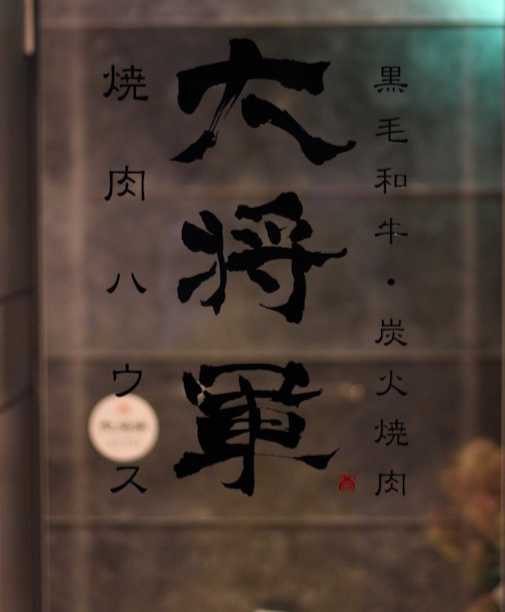 黒毛和牛・炭火焼肉
大将軍
焼肉ハウス